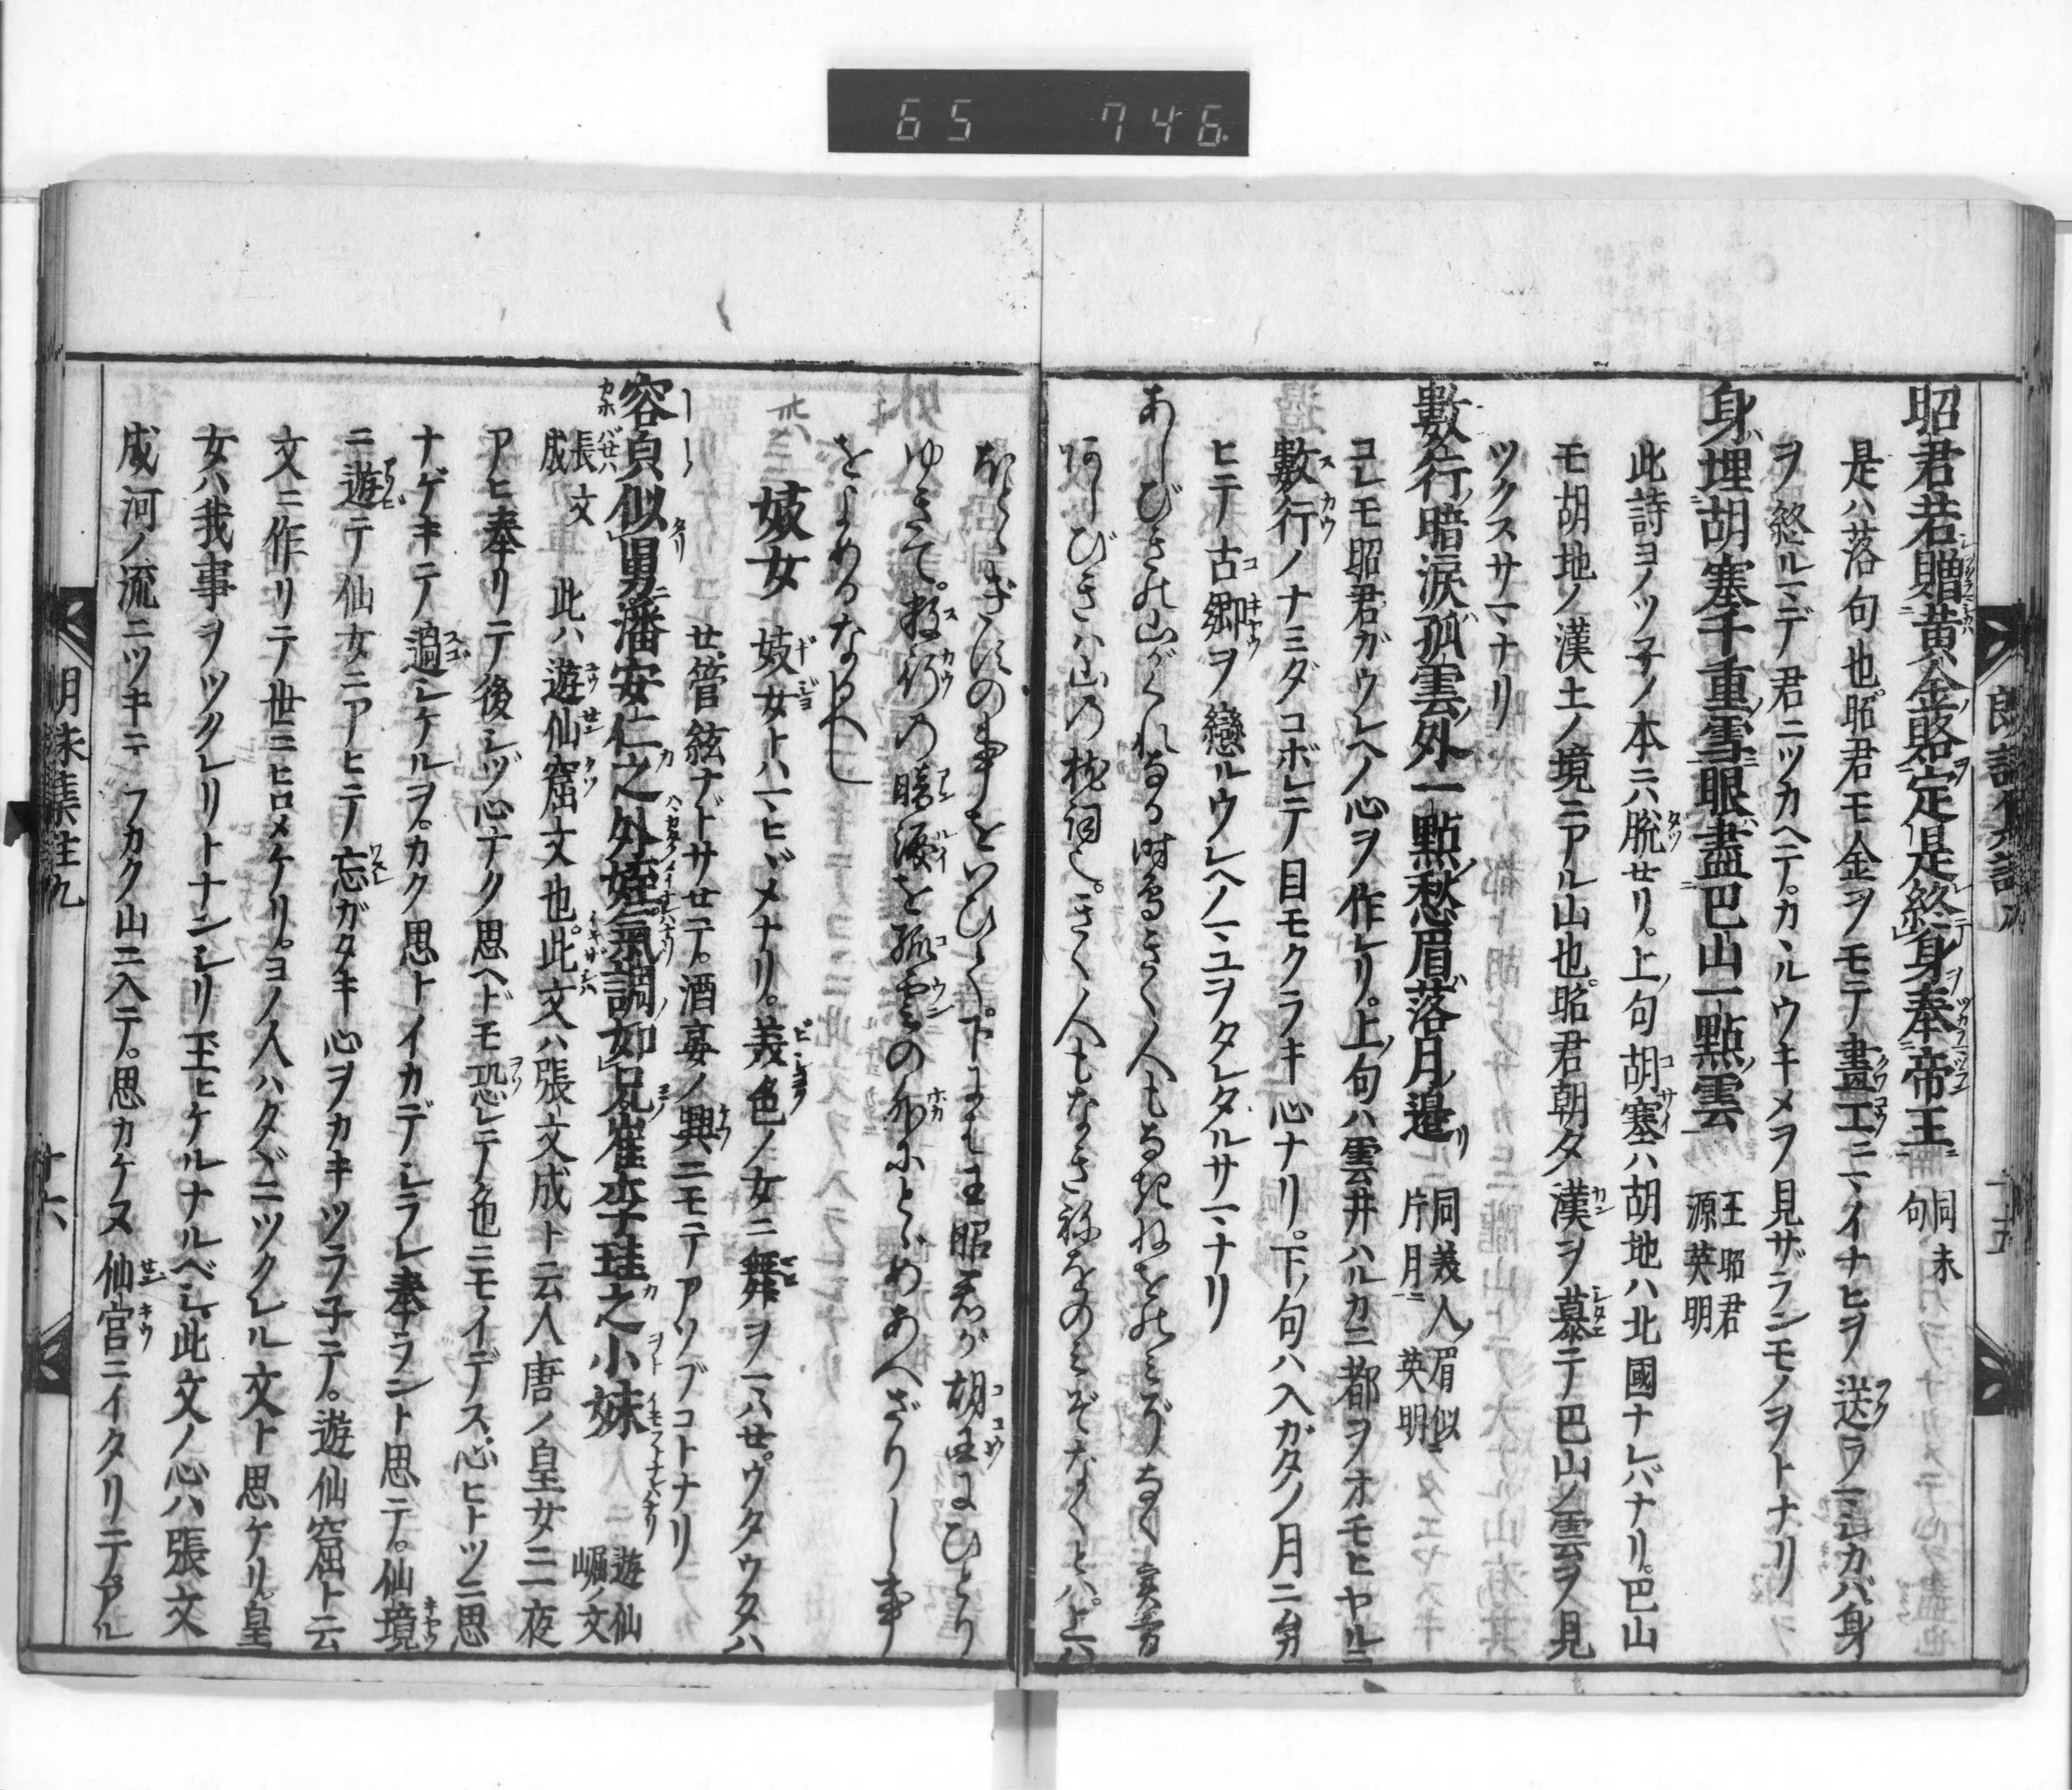 65 746
昭君若贈黄金賂定是終身奉帝王 同末句
是ハ落句也昭君モ金ヲモテ畫工ニマイナヒヲ送ラマシカバ身
ヲ終ルマデ君ニツカヘテカヽルウキメヲ見ザランモノヲトナリ
身埋胡塞千重雪眼盡巴山一點雲 王昭君 源英明
此詩ヨノツ子ノ本ニハ脱セリ上ノ句胡塞ハ胡地ハ北國ナレバナリ巴山
モ胡地ノ漢土ノ境ニアル山也昭君朝夕漢ヲ慕テ巴山ノ雲ヲ見
ツクスサマナリ
數行暗涙孤雲外一點愁眉落月邊 同義人眉似片月 英明
コレモ昭君ガウレヘノ心ヲ作レリ上ノ句ハ雲井ハルカニ都ヲオモヒヤルニ
數行ノナミダコボレテ目モクラキ心ナリ下ノ句ハ入ガタノ月ニ
ヒテ古郷ヲ戀ルウレヘノマユヲタレタルサマナリ
あしびきの山がくれなる時鳥きく人もなきねをのみぞなく 実方
あしびきハ山の枕詞也きく人もなきねをのミぞなくとハ上ハ
ほとゝぎすの事をいひて下にハ王昭君が胡国にひとり
ゆきて数行の暗涙を孤雲の外にとゞめあへざりし事
をよめるなるへし
妓女 妓女トハマヒヾメナリ義色ノ女ニ舞ヲマハせウタウタハ
せ管絃ナドサせテ酒宴ノ興ニモテアソブコトナリ
容皃似男潘安仁之外姪氣調如兄崔季珪之小妹 遊仙崛ノ文
張文成 此ハ遊仙窟文也此文ハ張文成ト云人唐ノ皇女ニ一夜
アヒ奉リテ後シヅ心ナク思ヘドモ恐レテ色ニモイデス心ヒトツニ思
ナゲキテノ過シケルヲカク思トイカデシラレ奉ラント思テ仙境
ニ遊テ仙女ニアヒテ忘ガタキ心ヲカキツラ子テ遊仙窟ト云
文ニ作リテ世ニヒロメケリヨノ人ハタヾニツクレル文ト思ケリ皇
女ハ我事ヲツクレリトナンシリ玉ヒケルナルベシ此文ノ心ハ張文
成河ノ流ニツキテフカク山ニ入テ思カケヌ仙宮ニイタリテアル